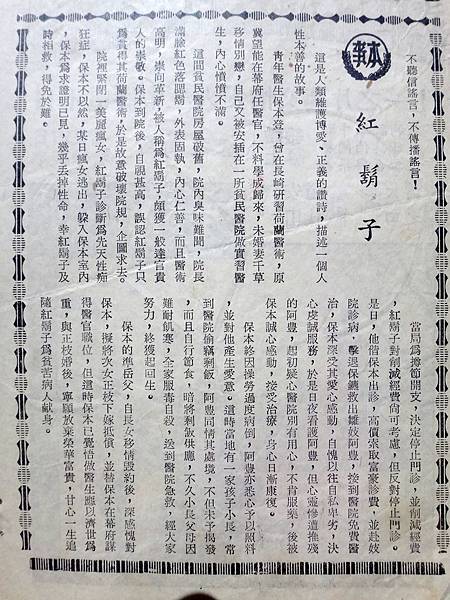 不聽信謠言，不傳播謠言！
本事
紅鬍子
這是人類維護博愛、正義的讚詩，描述一個人
性本善的故事。
青年醫生保本登，曾在長崎研習荷蘭醫術，原
冀望能在幕府任醫官，不料學成歸來，未婚妻千草
移情別戀，自己又被安插在一所貧民醫院做實習醫
生，內心憤憤不滿。
這間貧民醫院房屋破舊，院內臭味難聞，院長
滿臉紅色落腮鬍，外表固執，內心仁善，而且醫術
高明，崇向革新，被人稱為紅鬍子，頗獲一般達官貴
人的崇敬。保本到院後，自視甚高，誤認紅鬍子只
為貪得其荷蘭醫術，於是故意破壞院規，企圖求去。
院裡緊閉一美麗瘋女，紅鬍子診斷為先天性痴
狂症，保本不以然，某日瘋女逃出，躲入保本室內
，保本為求證明己見，幾乎丟掉性命，幸紅鬍子及
時相救，得免於難。
當局為撙節開支，決定停止門診，並削減經費
，紅鬍子對削減經費尚可考慮，但反對停止門診。
是日，他偕保本出診，高價索取富豪診費，並赴妓
院診病，擊退保鑣救出雛妓阿豐，接到醫院免費醫
治，保本深受其愛心感動，自愧以往自私卑劣，決
心虔誠服務，於是日夜看護阿豐，但心靈慘遭摧殘
的阿豐，起初疑心醫院別有用心，不肯服藥，後被
保本誠心感動，接受治療，身心日漸康復。
保本終因操勞過度病倒，阿豐亦悉心予以照料
，並對他產生愛意。這時當地有一家孩子小長，常
到醫院偷竊剩飯，阿豐同情其處境，不但未予揭發
，而且自行節食，暗將剩飯供應，不久小長父母因
難耐飢寒，全家服毒自殺，送到醫院急救，經大家
努力，終獲起回生。
保本的準岳父，自長女移情毀約後，深感愧對
保本，擬將次女正枝下嫁抵償，並替保本在幕府謀
得醫官職位，但這時保本已覺悟做醫生應以濟世為
重，與正枝婚後，寧願放棄榮華富貴，甘心一生追
隨紅鬍子為貧苦病人獻身。